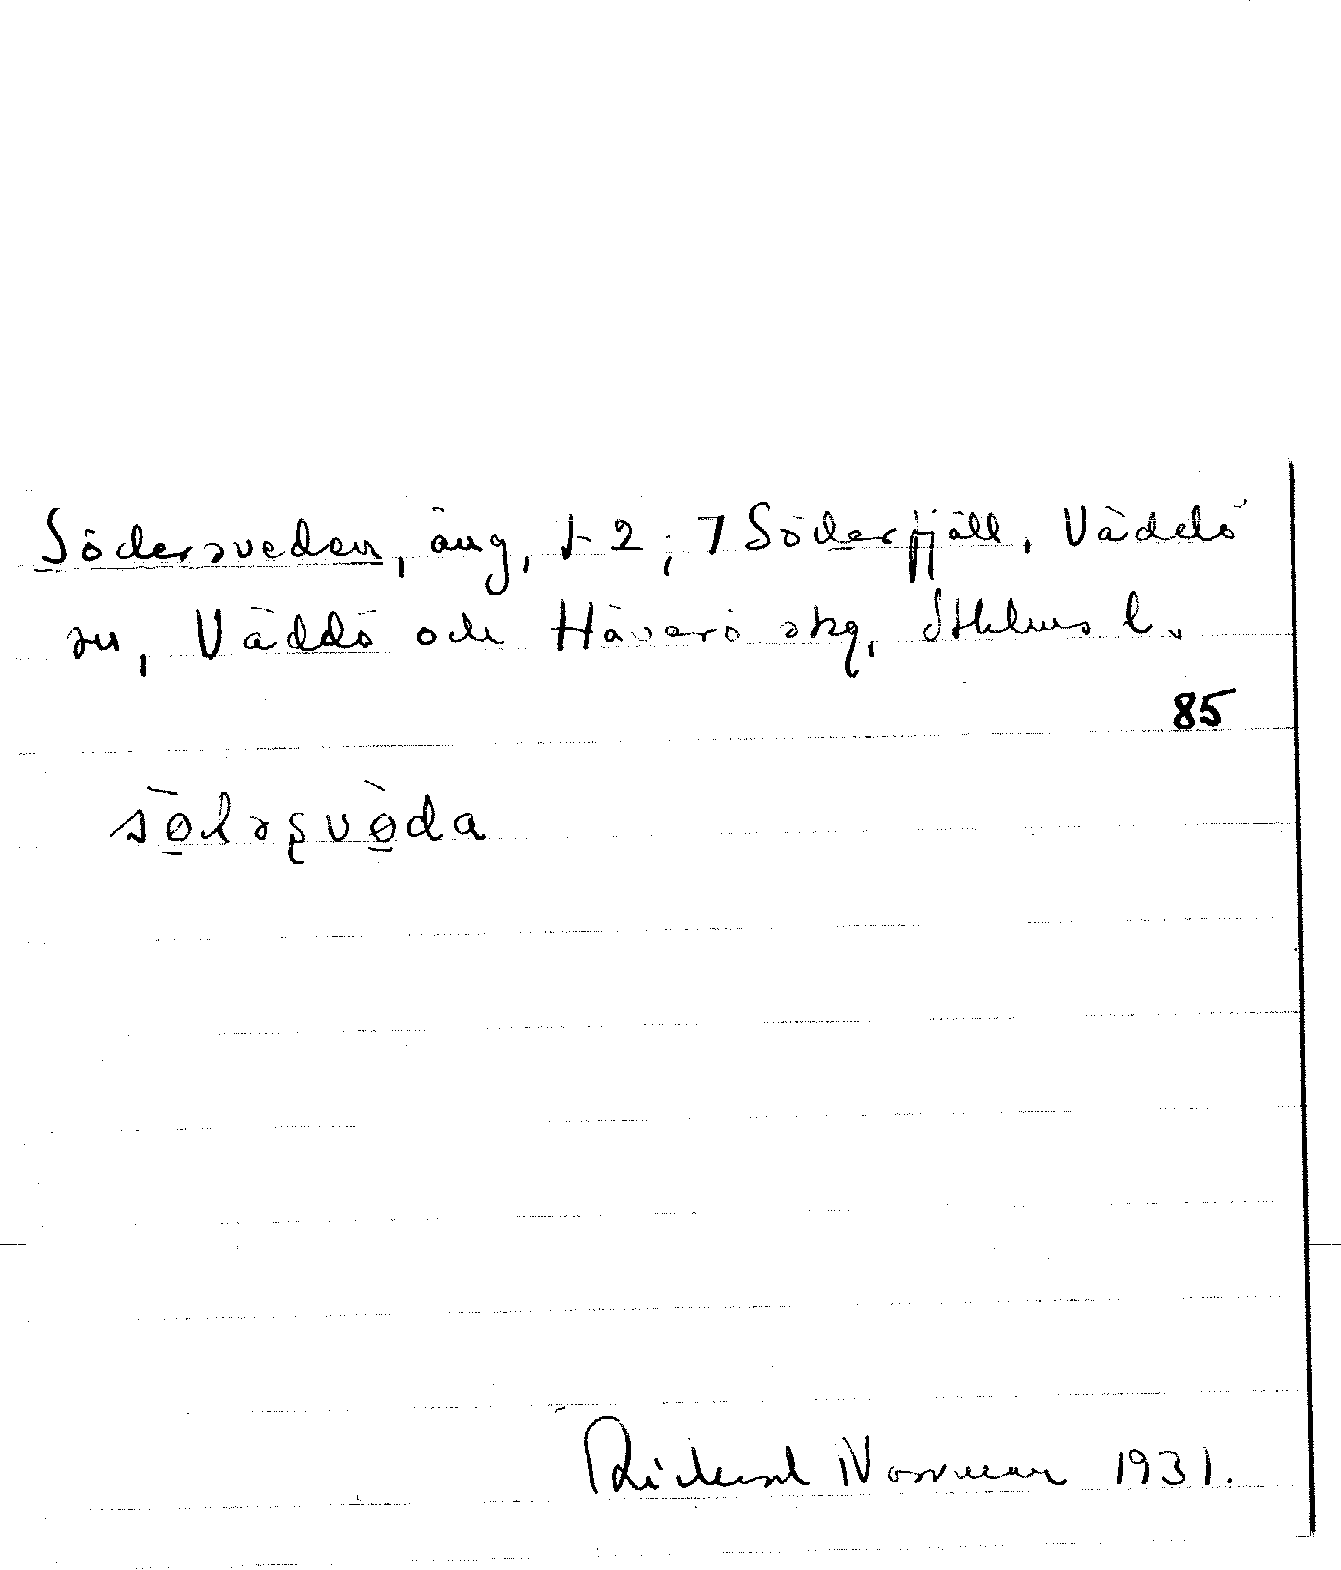 Södersveden, äng, J-2; 7 Söderfjäll, Väddö
sn, Väddö och Häverö skg, Sthlms l.
85
sø̱̀ləʂvø̱̀da
Rickard Norrman 1931.